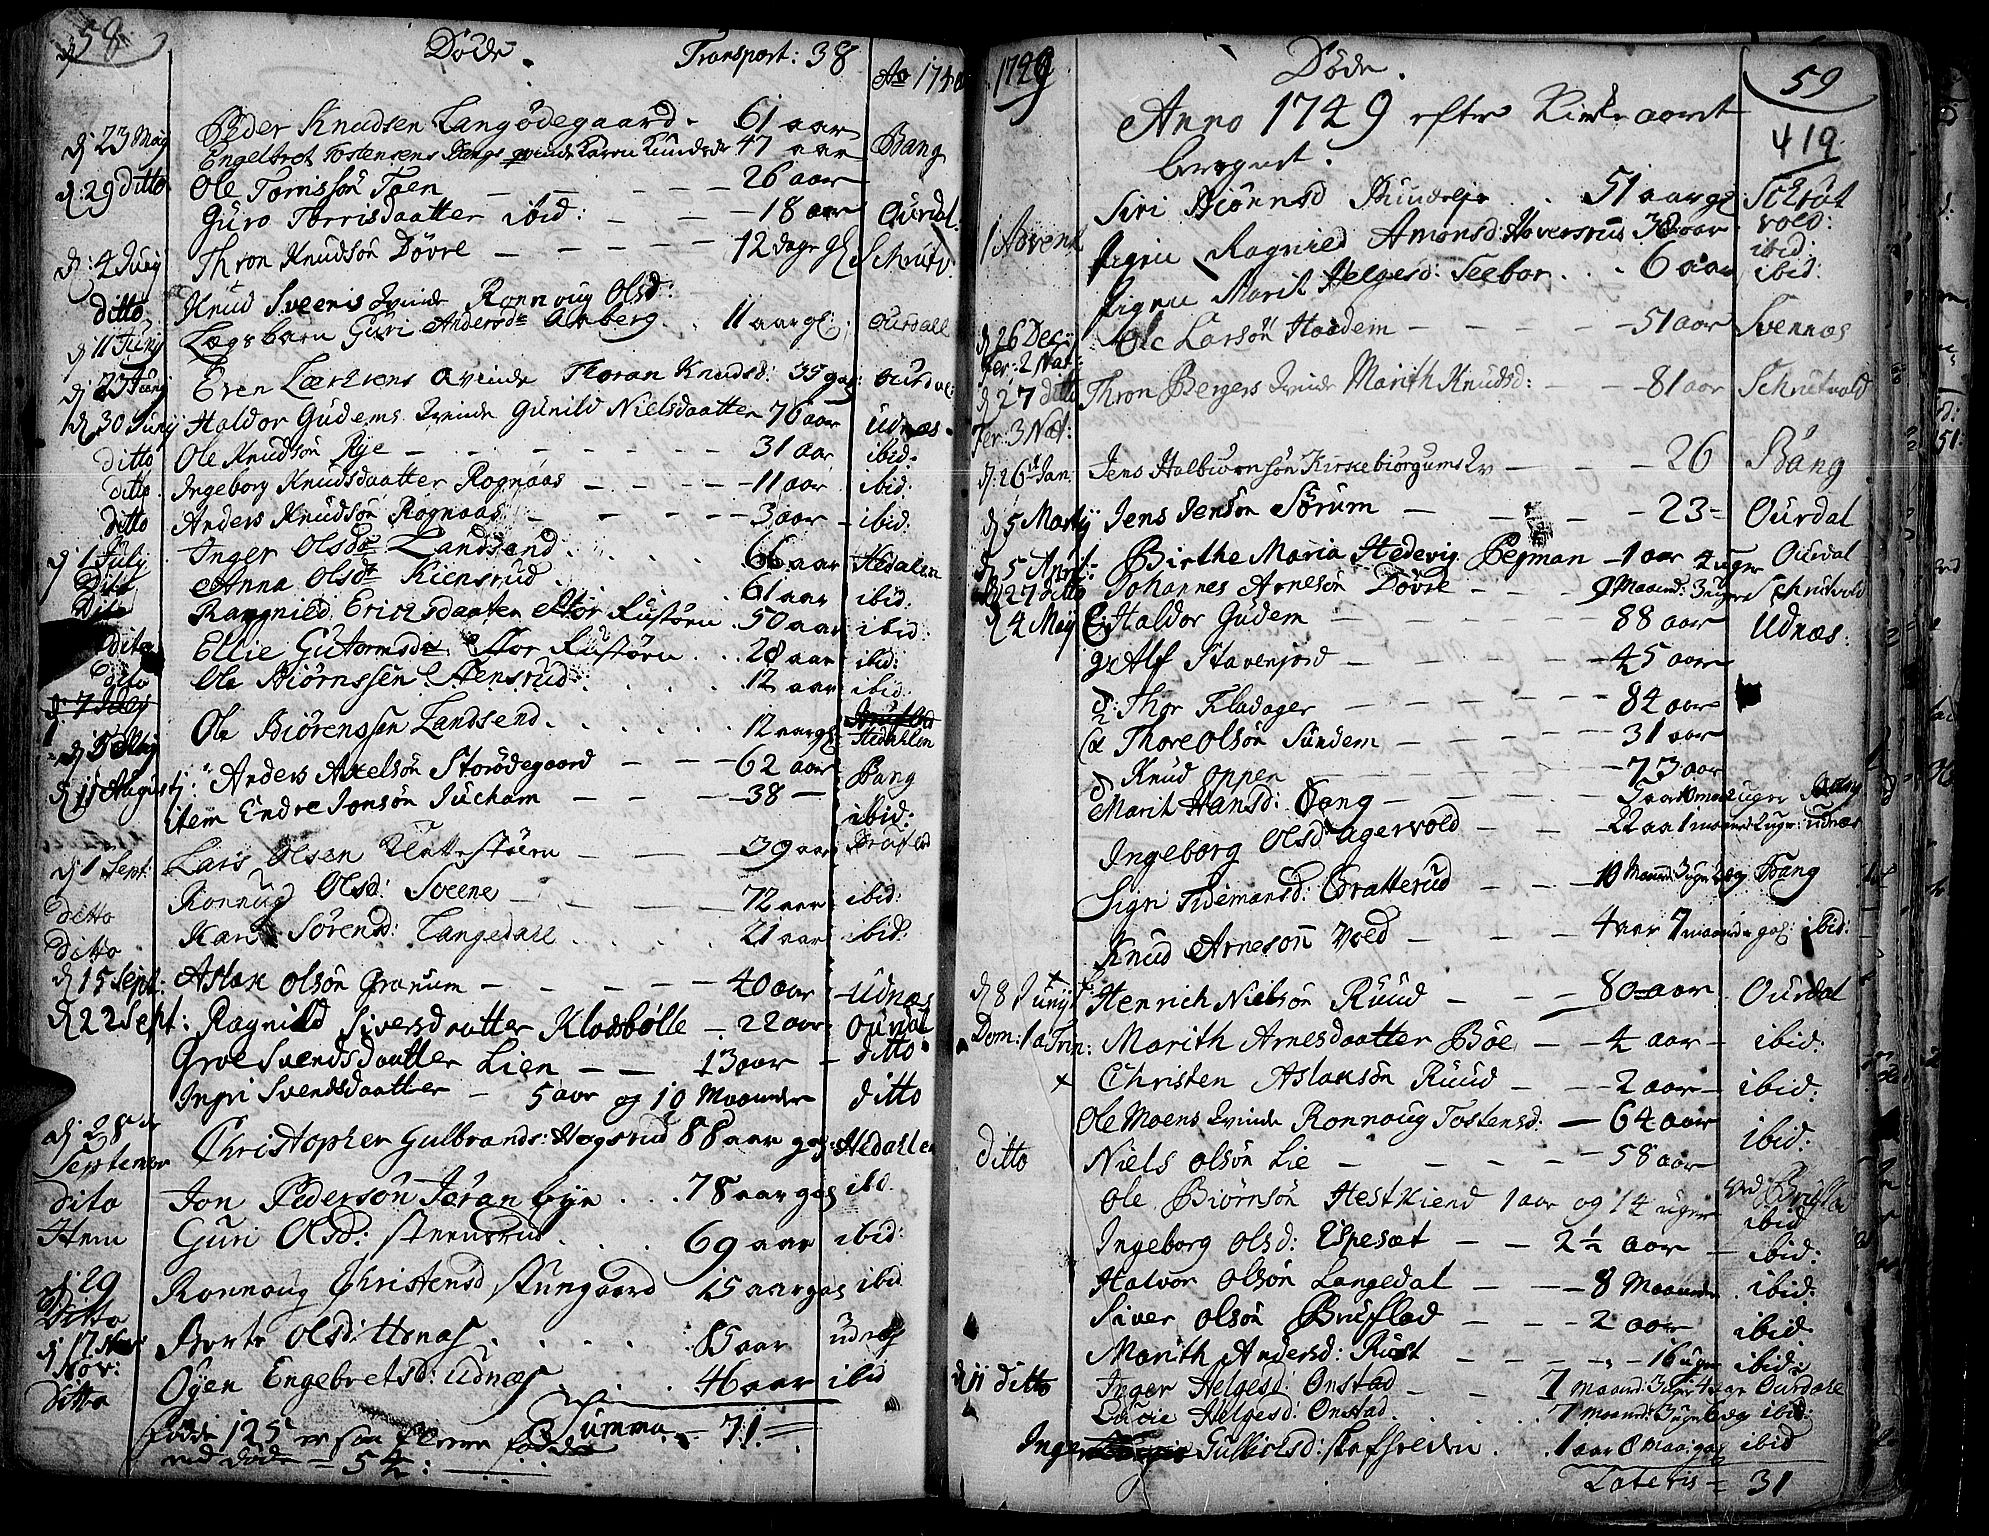 58
Døde. Transport: 38 Ao 174
d 23 Maij Peder Knudsen Langødegaard. 61 aar
Engelbret Tostensens Bangs qvinde Karen Knudsdr 47 aar Bang
d: 29 Ditto Ole Torrissøn Toen — — — 26 aar
Guro Torrisdaatter ibid: — — — 18 aar Ourdal.
d: 4 Junij Thron Knudsøn Døvre — — — 12 dage gl Schrutv
ditto Knud Sveenis Qvinde Ronnoug Olsd:
d 11 Junij Lægsbarn Guri Andersdr Aaberg. 11 aar gl: Ourdall
d 23 Junij Even Lærkrens Qvinde Thoran Knudsd: 35 gal: Ourdal
d. 30 Junij Haldor Gudems Qvinde Gunild Nielsdaatter 76 aar Udnæs.
ditto Ole Knudsøn Rye — — — 31 aar ibid.
ditto. Ingeborg Knudsdaatter Rognaas — — — 11 aar ibid.
ditto Anders Knudsøn Rognaas — — — 3 aar — ibid.
d 1 July Inger Olsdr Landsend . . . 66 aar Hedalen
Dito Anna Olsdr Kiensrud . . . 61 aar ibid.
Dito Rangnild Ericksdaater Stor Rustøen . 50 aar ibid:
dito Ellie Gutormsdr Stor Rustøen . . 28 aar ibid:
Dito Ole Biørnssen Stensrud . . . 12 aar ibid.
d. 7 July Ole Biørenssen Landsend . . . 12 aar gl Hedahlen
Anders Axelsøn Storødegaard — — 62 aar Bang
d 11 Augustj: item Endre Jonsøn Jucham — — — 38 — ibid:
d 1 Sept: Lars Olsen Klattestøen — — — 39 aar Bruflad
Ditto Ronnug Olsd: Sveene — — — 72 aar ibid:
Ditto Kari Sørensd: Langedall . . . 21 aar ibid:
d 15 Sept: Aslak Olsøn Granum — — — 40 aar — Udnæs
d 22 Sept: Ragnild Siversdaatter Klosbølle — 22 aar: Ourdal
Groe Svendsdaatter Lien — — 13 aar — Ditto.
Ingri Svendsdaatter — 5 aar og 10 Maaneder ditto
d 28de Septembr Christopher Gulbrands: Hogsrud 88 aar gal: Hedallen
Dito Jon Pedersøn Jøranbye . . . 78 aar gal ibd.
Item Guri Olsd: Steensrud . . . 69 aar ibid:
d: 29 Ditto Ronnoug Christensd Stungaard 15 aar gas ibid
d 17 Nov: Berte Olsd: Hønas . . . 85 aar udnæs
Ditto Oyen Engebretsd: udnæs . . . 46 aar ibid
Summa — 71 —
fødde 125 er saa fleere fødde
end døde — 54: —
1749 Døde. 59
Anno 1749 efter Kirke aaret 419
beregnet.
1 Advent Siri Biønnsd . . 51 aar gl Schrutvold:
signe Ragnild Amonsd: Haversrud 38 aar ibid:
signe Marit Helgesd: Seebør . . . 6 aar ibid:
d 26 Dec: Ole Larsøn Haadem — — — 51 aar Svennæs
Fer: 2 Nat:
d 27 ditto Thron Bergers Qvinde Marith Knudsd: — — 81 aar Schrutvold
Fer: 3 Nat:
d: 26 Jan: Jens Halbiørnsøn Kirkebiørgums Qv — — 26 Bang
d 5 Martij Jens Jensøn Sørum — — — 23 — Ourdal
d 5 Apr: Birthe Maria Hedevig Pegman — 1 aar 4 uger Ourdal
d 27 ditto Johannes Arnesøn Døvre — — — 9 Maaned: 3 uger Schrutvold
d 4 Maij Haldor Gudem — — — 88 aar Udnæs.
Alf Stavenjord — — — 45 aar
Thor Fladager — — — 84 aar
Thore Olsøn Sundem — — — 31 aar
Knud Oppen — — — 73 aar
Marit Hansd: Bang — — — 3 aar 10 maa 2 uger Bang
Ingeborg Olsd: agervold — — 22 aa 1 maaned 2 uger: udnæs
Sigri Tidemansd: Bratterud — — 10 Maaned 3 uger 2 dag Bang
Knud Arnesøn Vold — — 4 aar 7 maaned gal: ibid:
d 8 Junij Henrich Nielsøn Ruud — — — 80 aar Ourdal
Dom: 1 a Trin: Marith Arnesdaatter Bøe — — 4 aar — ibid:
Christen Aslaksøn Ruud — — — 2 aar — ibid:
Ole Moens Qvinde Ronnoug Tostensd: — 64 aar ibid:
Ditto Niels Olsøn Lie — — — 58 aar
Ole Biørnsøn Hestkiend 1 aar og 14 uger ved Bruflad
Ingeborg Olsd: Espesæt — — 2½ aar — ibid
Halvor Olsøn Langedal — — 8 Maaneder ibid:
Siver Olsøn Bruflad — — 2 aar ibid:
Marith Andersd: Rust — — — 16 uger ibid:
d 11 ditto Inger Helgesd: Onstad — — 7 maaned: 3 uger 4 dage Ourdahl
Lucie Helgesd: Onstad . . . 7 maaned: 3 uge 6 dag ibid:
Inger Gulliksd: Staffseiden . . 1 aar 8 maa: gal ibid
Lateris — 31